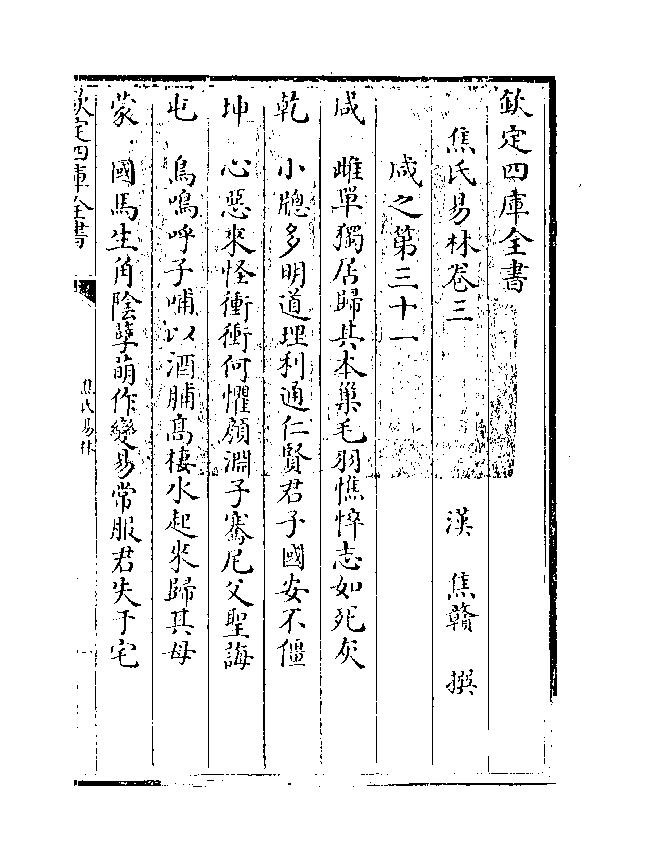 欽定四庫全書
焦氏易林卷三 漢 焦贛 撰
咸之第三十一
咸 雌單獨居歸其本巢毛羽憔悴志如死灰
乾 小牕多明道理利通仁賢君子國安不僵
坤 心惡來怪衝衝何懼顔淵子騫尼父聖誨
屯 鳥鳴呼子哺以酒脯髙棲水起來歸其母
蒙 國馬生角陰孽萌作變易常服君失于宅
欽定四庫全書
焦氏易林